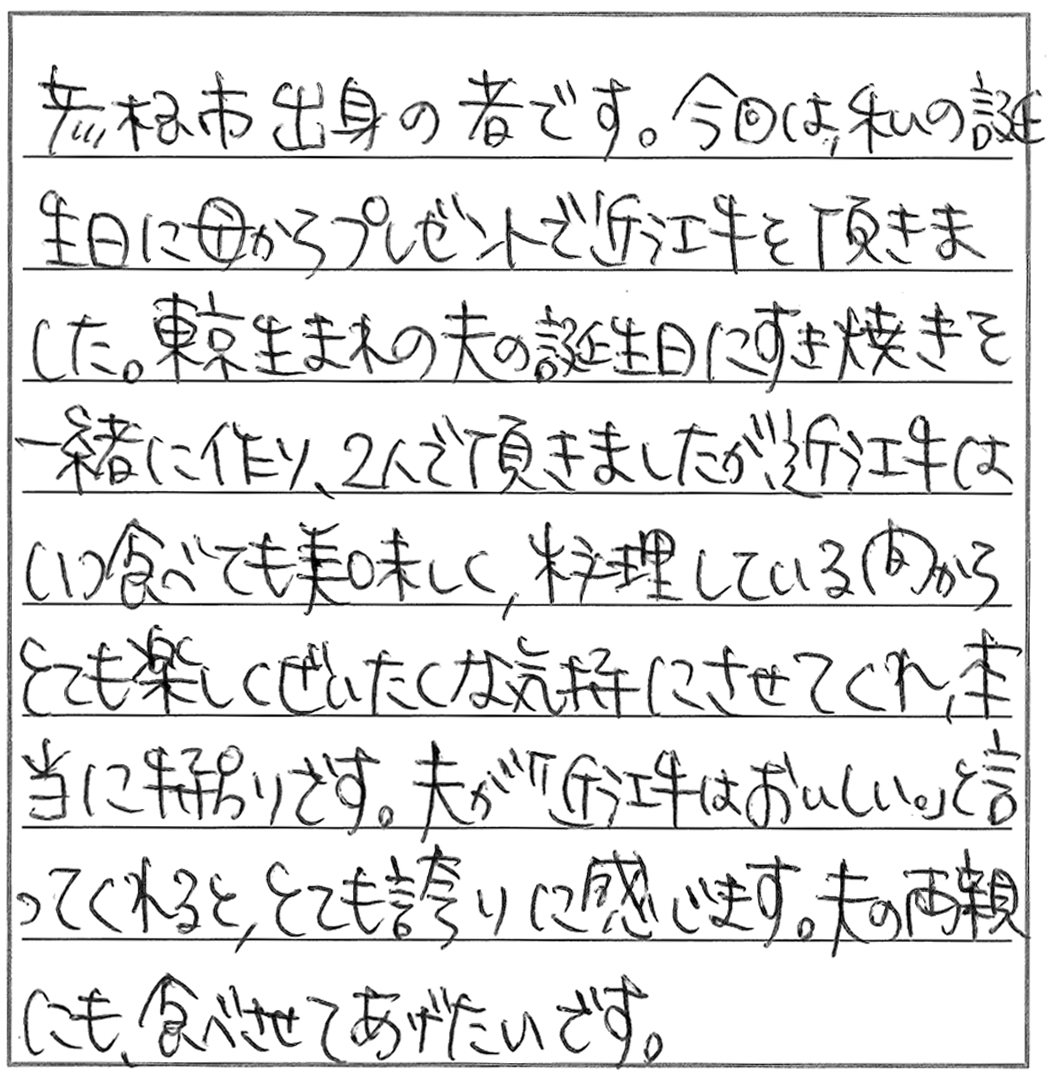 彦根市出身の者です。今回は、私の誕
生日に母からプレゼントで近江牛を頂きま
した。東京生まれの夫の誕生日にすき焼きを
一緒に作り、2人で頂きましたが、近江牛は
いつ食べても美味しく、料理している間から
とても楽しくぜいたくな気持にさせてくれ、本
当に特別です。夫が「近江牛はおいしい。」と言
ってくれると、とても誇りに感じます。夫の両親
にも、食べさせてあげたいです。